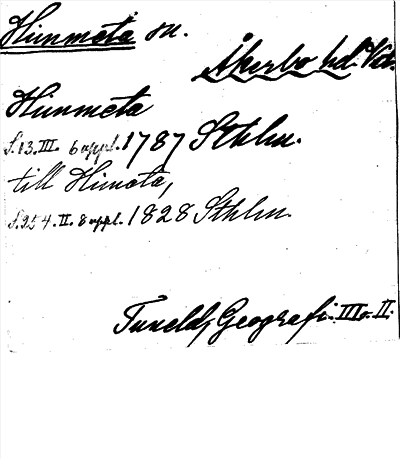 Himmeta sn.
Åkerbo hd. Vstm.
Himmeta
S. 13. III. 6 uppl. 1787 Sthlm.
till Himeta,
S. 254. II. 8 uppl. 1828 Sthlm.
Tunelds Geografi. III o. II.